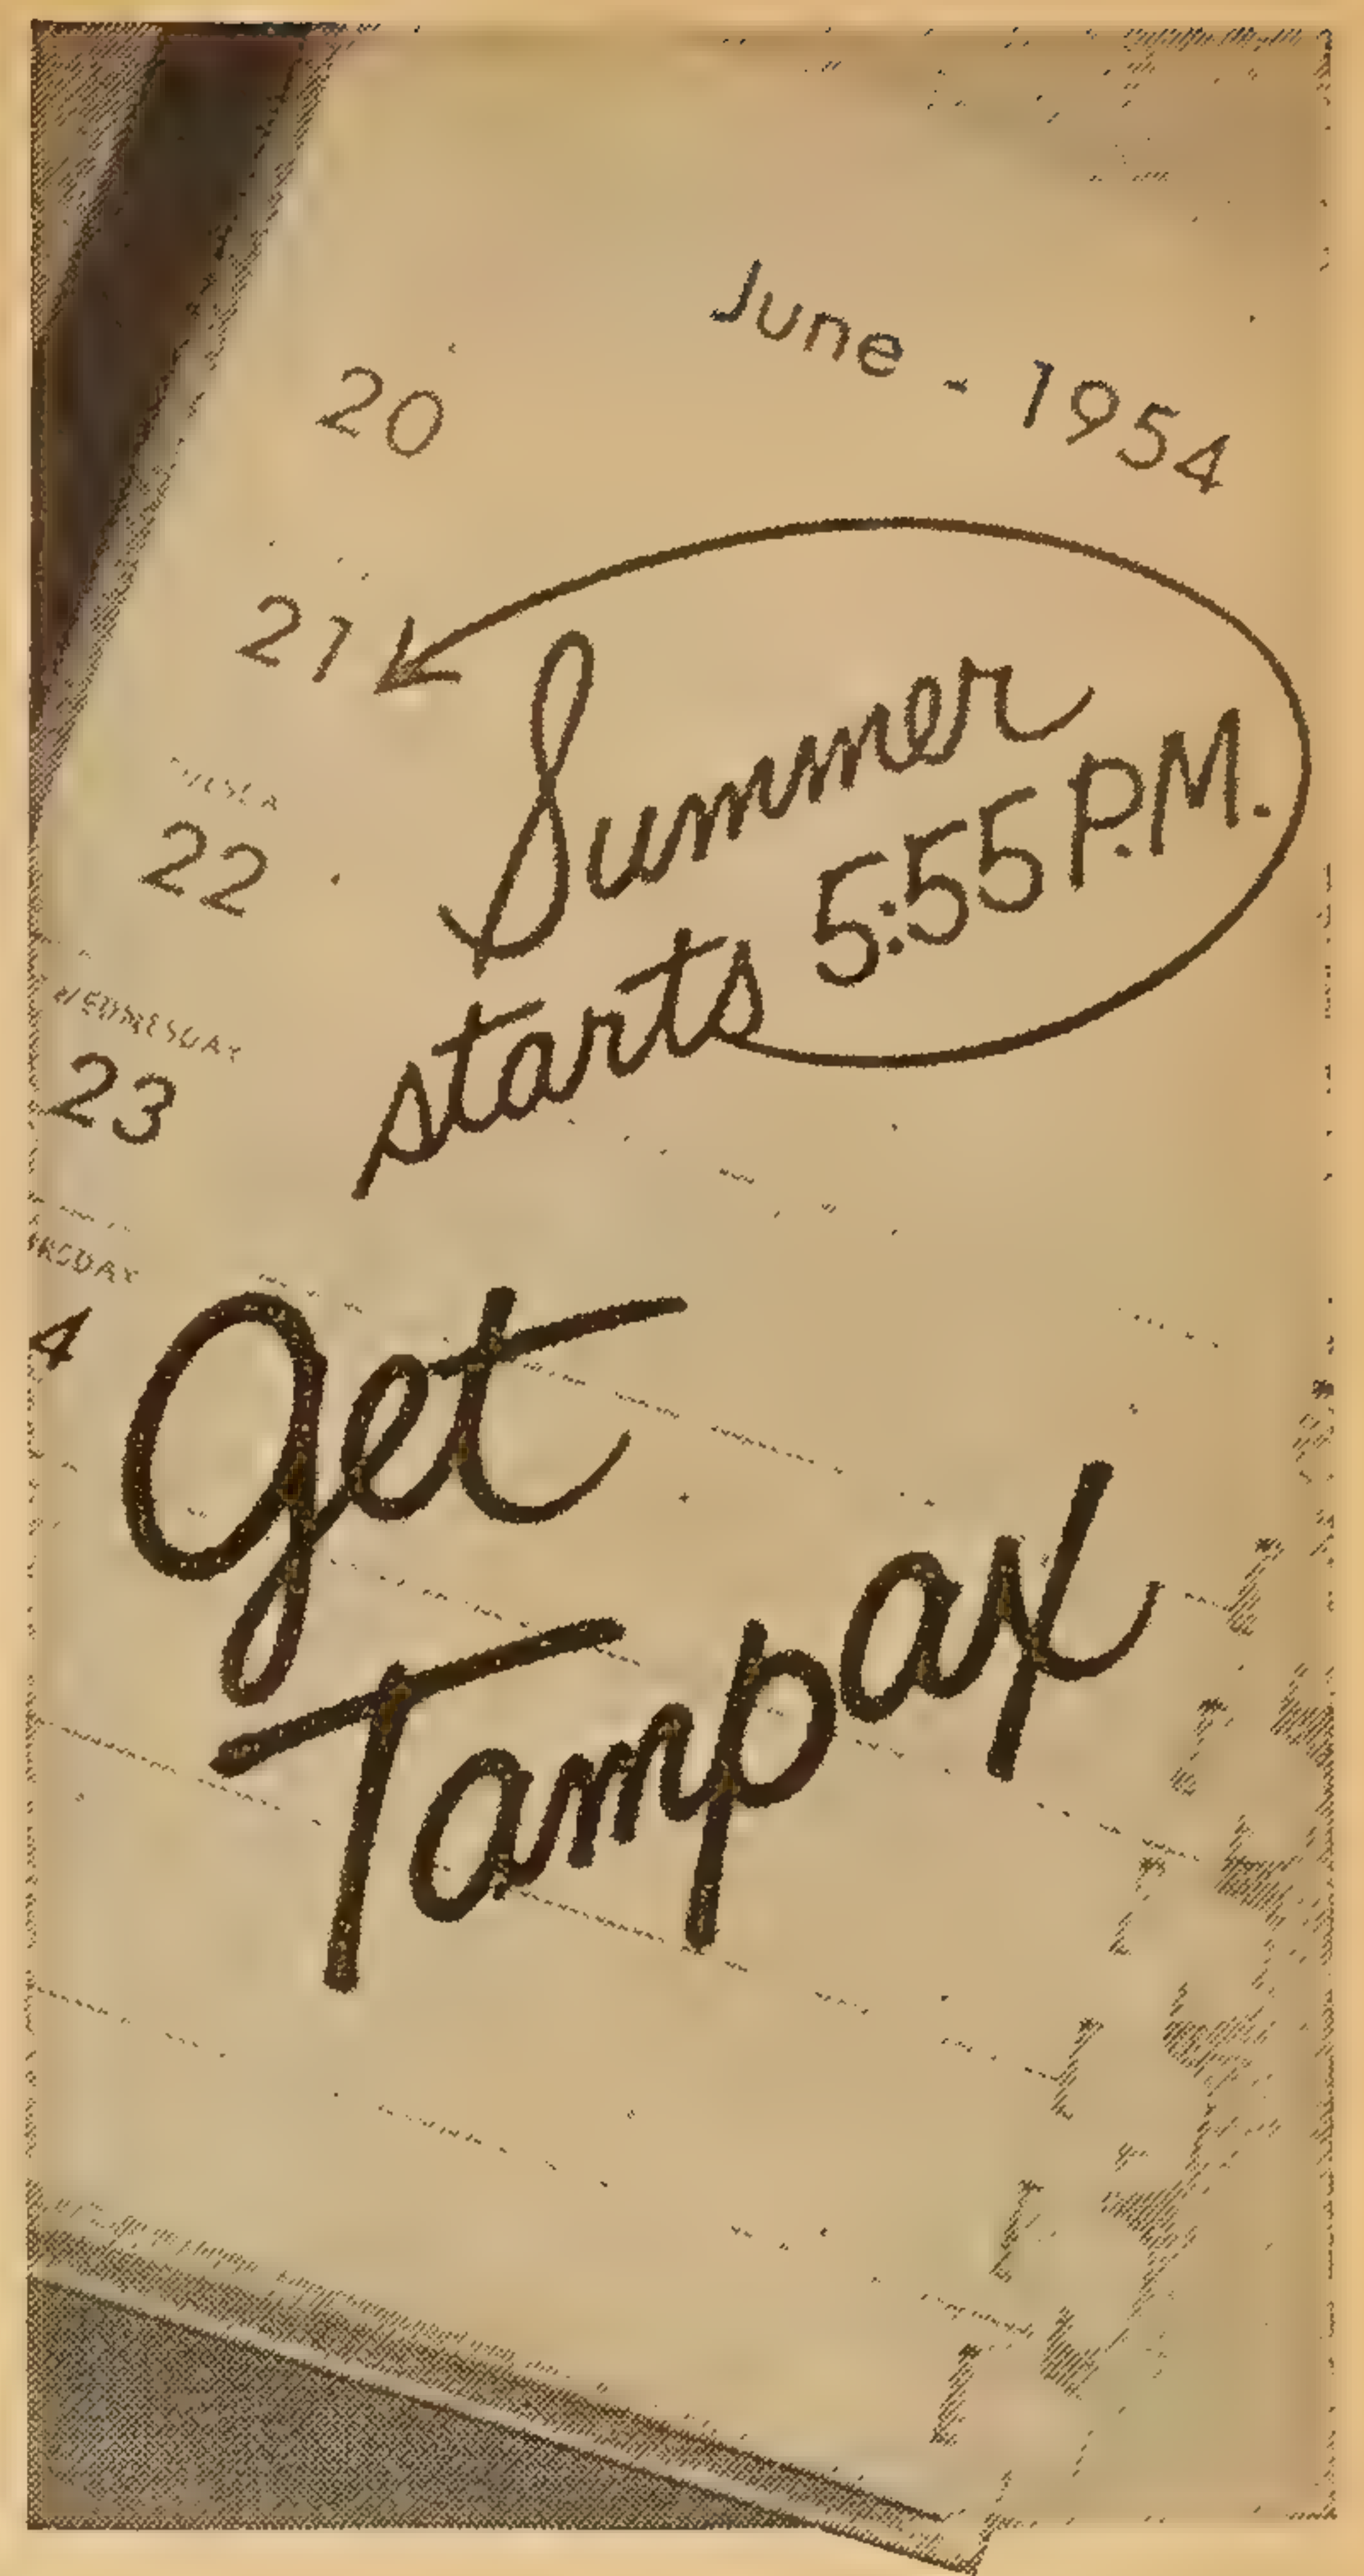 June - 1954
20
21
Summer
starts 5:55 P.M.
22
WEDNESDAY
23
4
Get
Tampax